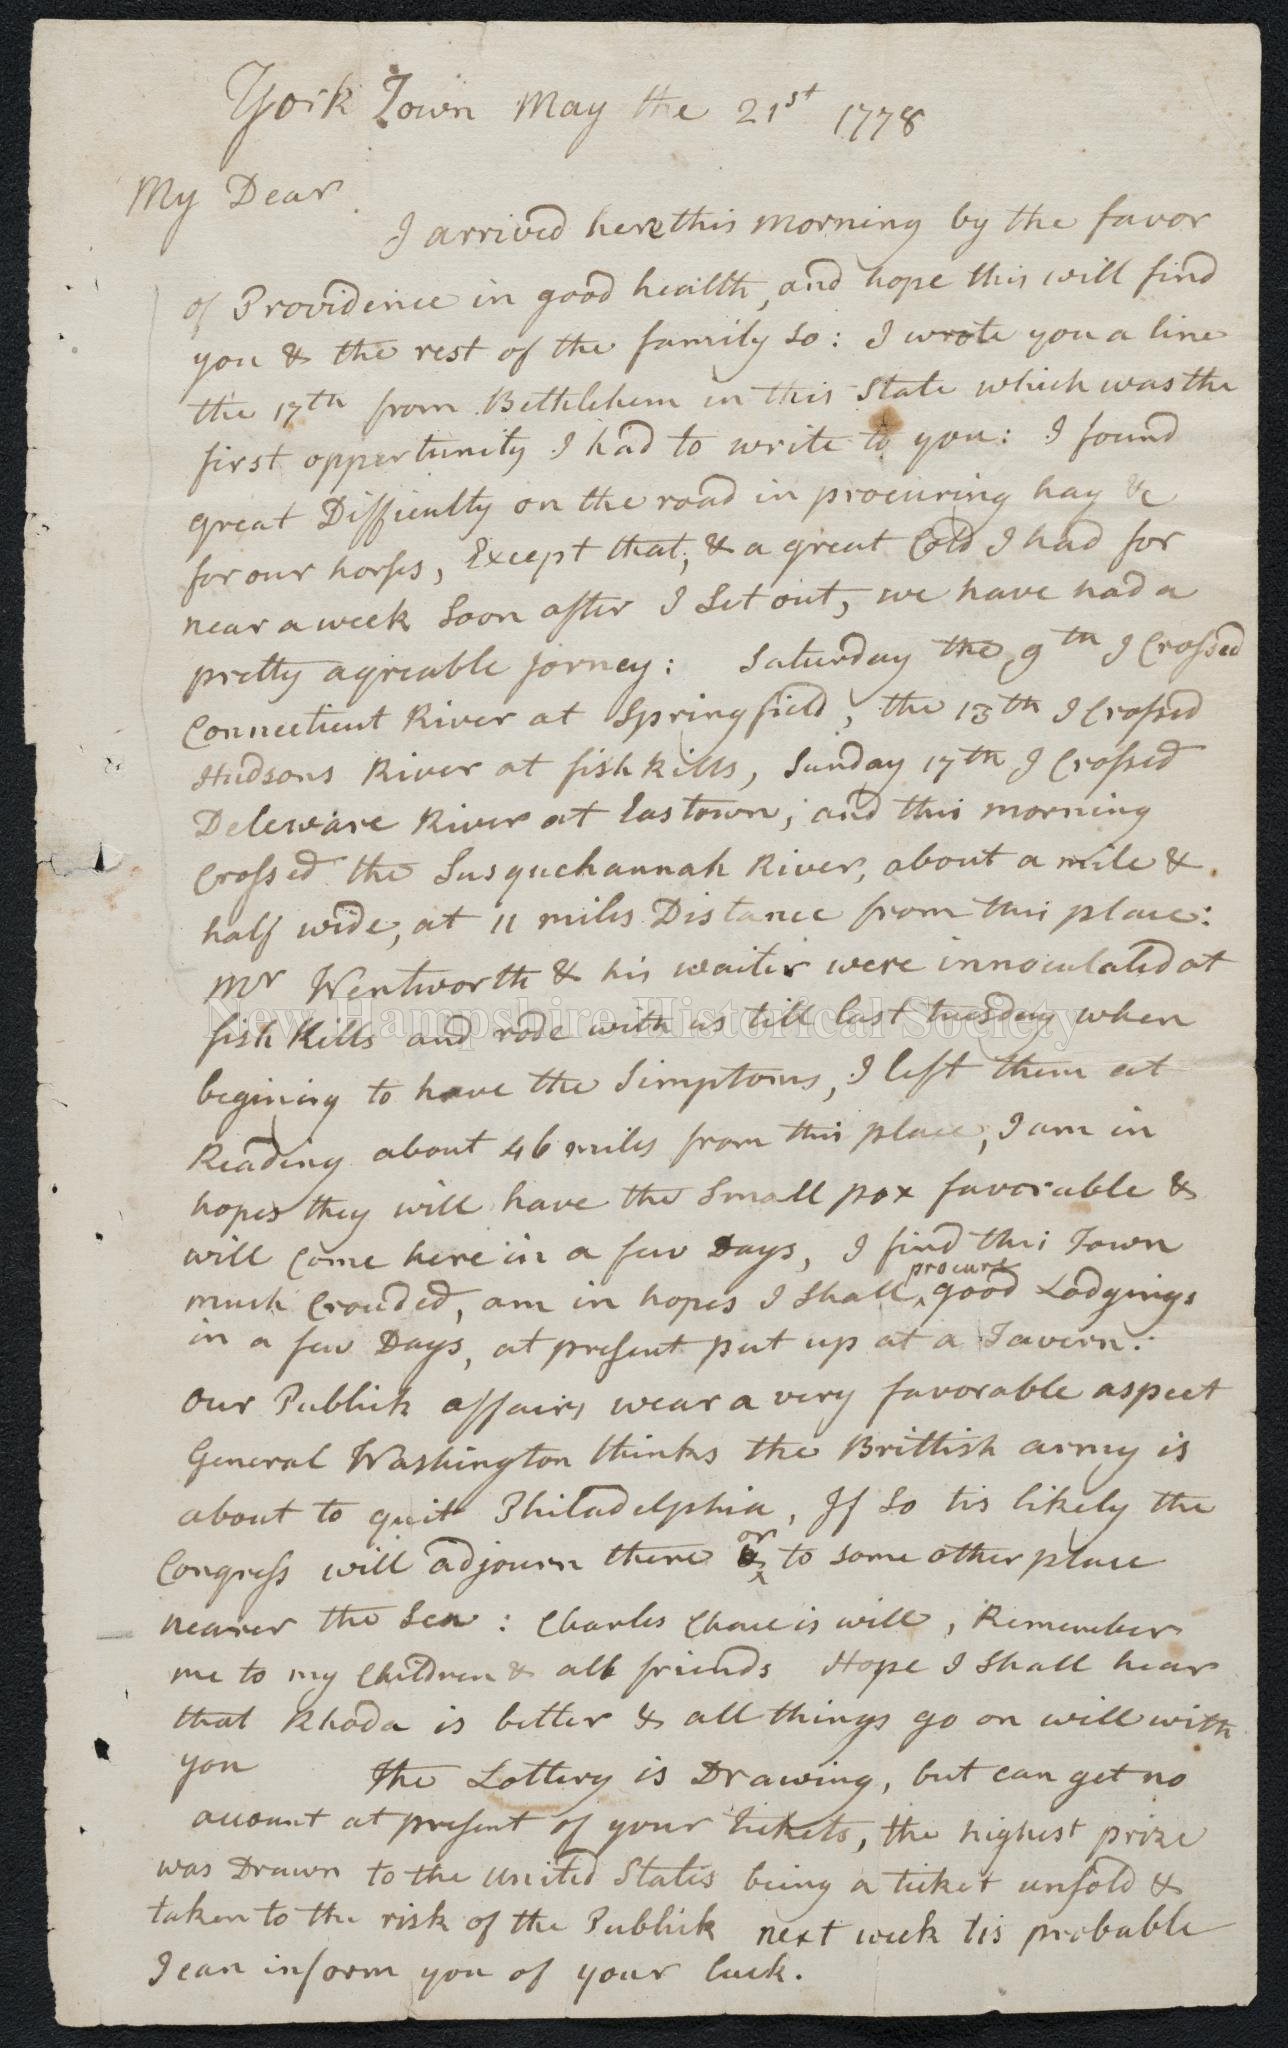 York Town May the 21st 1778
My Dear
I arrived here this morning by the favor
of Providence in good health, and hope this will find
you & the rest of the family so: I wrote you a line
the 17th from Bethlehem in this State which was the
first opportunity I had to write to you: I found
great Difficulty on the road in procuring hay &c
for our horses, Except that, & a great Cold I had for
near a week Soon after I Set out, we have had a
pretty agreable Jorney: Saturday the 9th I Crossed
Connecticut River at Springfield, the 13th I Crossed
Hudsons River at fish kills, Sunday 17th I Crossed
Deleware River at Eastown; and this morning
Crossed the Susquehannah River, about a mile &
half wide, at 11 miles Distance from this place:
Mr Wentworth & his waiter were innoculated at
fish Kills and rode with us till last tuesday when
begining to have the Simptoms, I left them at
Reading about 46 miles from this place, I am in
hopes they will have the Small pox favorable &
will Come here in a few Days, I find this Town
much Crouded, am in hopes I Shall procure good Lodgings
in a few Days, at present put up at a Tavern:
our Publick affairs wear a very favorable aspect
General Washington thinks the Brittish army is
about to quit Philadelphia, If So tis likely the
Congress will adjourn there or to some other place
nearer the Sea: Charles Chace is well, Remember
me to my Children & all friends Hope I Shall hear
that Rhoda is better & all things go on well with
you The Lottery is Drawing, but can get no
account at present of your tickets, the highest prize
was Drawn to the United States being a ticket unsold &
taken to the risk of the Publick next week tis probable
I can inform you of your luck.
New Hampshire Historical Society